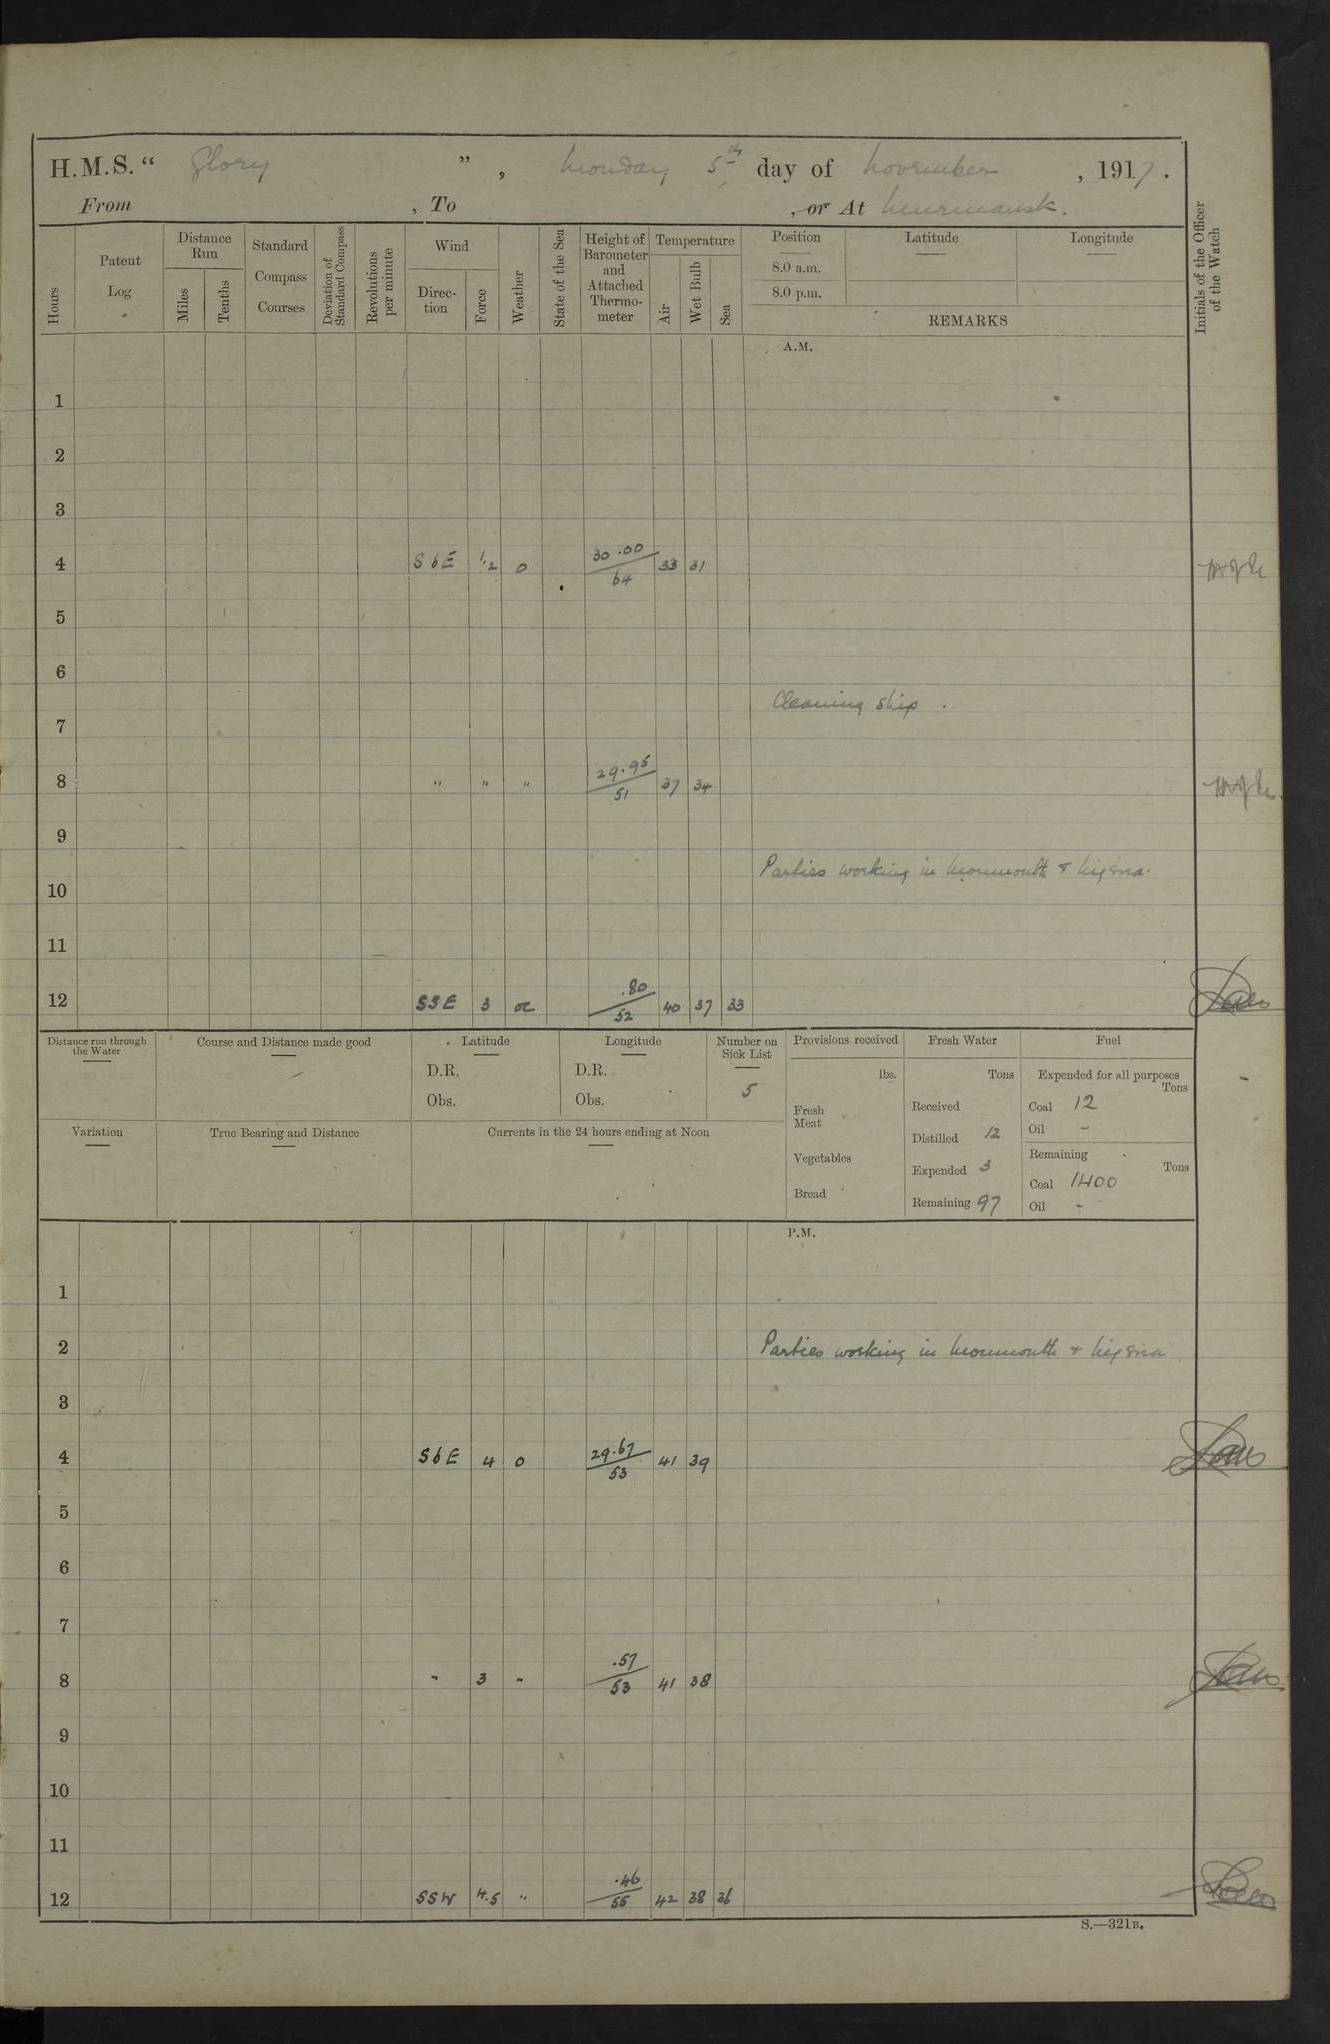 H.M.S. “ Glory ” , Monday 5th day of November , 1917 .
From , To , or At Murmansk.
Hours
Patent Log
Distance Run
Miles
Tenths
Standard Compass Courses
Deviation of Standard Compass
Revolutions per minute
Wind
Direction
Force
Weather
State of the Sea
Height of Barometer and Attached Thermometer
Temperature
Air
Wet Bulb
Sea
Position
8.0 a.m.
8.0 p.m.
Latitude
Longitude
REMARKS
Initials of the Officer of the Watch
A.M.
1
2
3
4 SbE 1.2 o 30.00 64 33 31
5
6
Cleaning ship .
7
8 " " " 29.95 51 37 34
9
Parties working in Monmouth &
10
11
12 SSE 3 oc .80 52 40 37 33
Distance run through the Water
Course and Distance made good
Latitude
D.R.
Obs.
Longitude
D.R.
Obs.
Number on Sick List
5
Variation
True Bearing and Distance
Currents in the 24 hours ending at Noon
Provisions received
lbs.
Fresh Meat
Vegetables
Bread
Fresh Water
Tons
Received
Distilled 12
Expended 3
Remaining 97
Fuel
Expended for all purposes
Tons
Coal 12
Oil -
Remaining
Tons
Coal 1400
Oil -
P.M.
1
2 Parties working in Monmouth &
3
4 SbE 4 o 29.67 53 41 39
5
6
7
8 " 3 " .57 53 41 38
9
10
11
12 SSW 4.5 " .46 55 42 38 36
S.—321B.